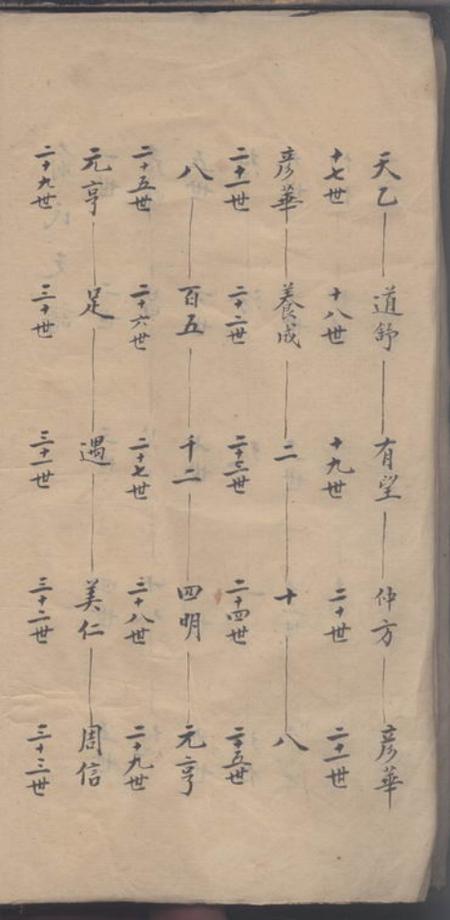 天乙 道舒 有望 仲方 彥華
十七世 十八世 十九世 二十世 二十一世
彥華 養成 二 十 八
二十一世 二十二世 二十三世 二十四世 二十五世
八 百五 千二 四明 元亨
二十五世 二十六世 二十七世 二十八世 二十九世
元亨 足 遇 美仁 周信
二十九世 三十世 三十一世 三十二世 三十三世